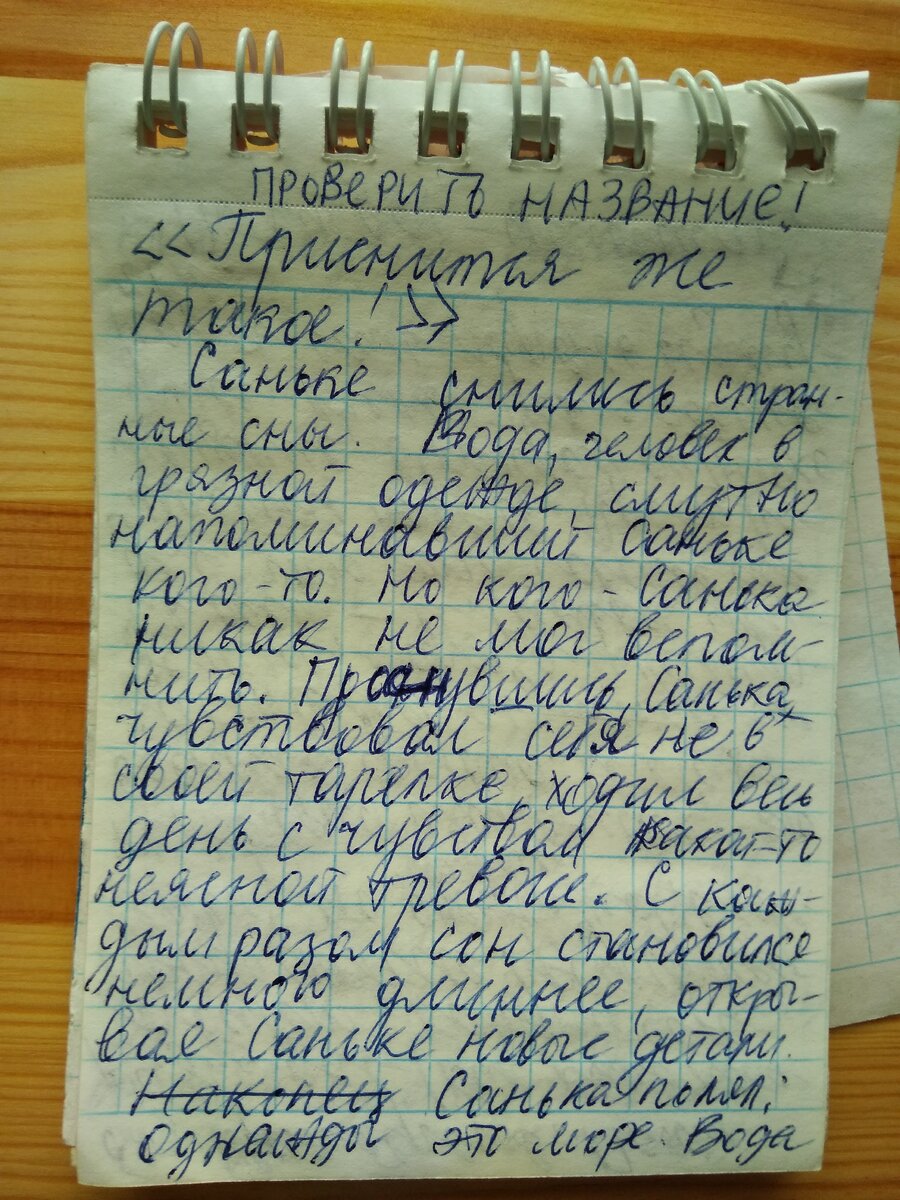 ПРОВЕРИТЬ НАЗВАНИЕ!
<<Приснится же
такое!>>
Саньке снились стран-
ные сны. Вода, человек в
грязной одежде, смутно
напоминавший Саньке
кого-то. Но кого - Санька
никак не мог вспом-
нить. Проснувшись, Санька
чувствовал себя не в
своей тарелке, ходил весь
день с чувством какой-то
неясной тревоги. С каж-
дым разом сон становился
немного длиннее, откры-
вая Саньке новые детали.
Наконец Санька понял:
однажды это море. Вода